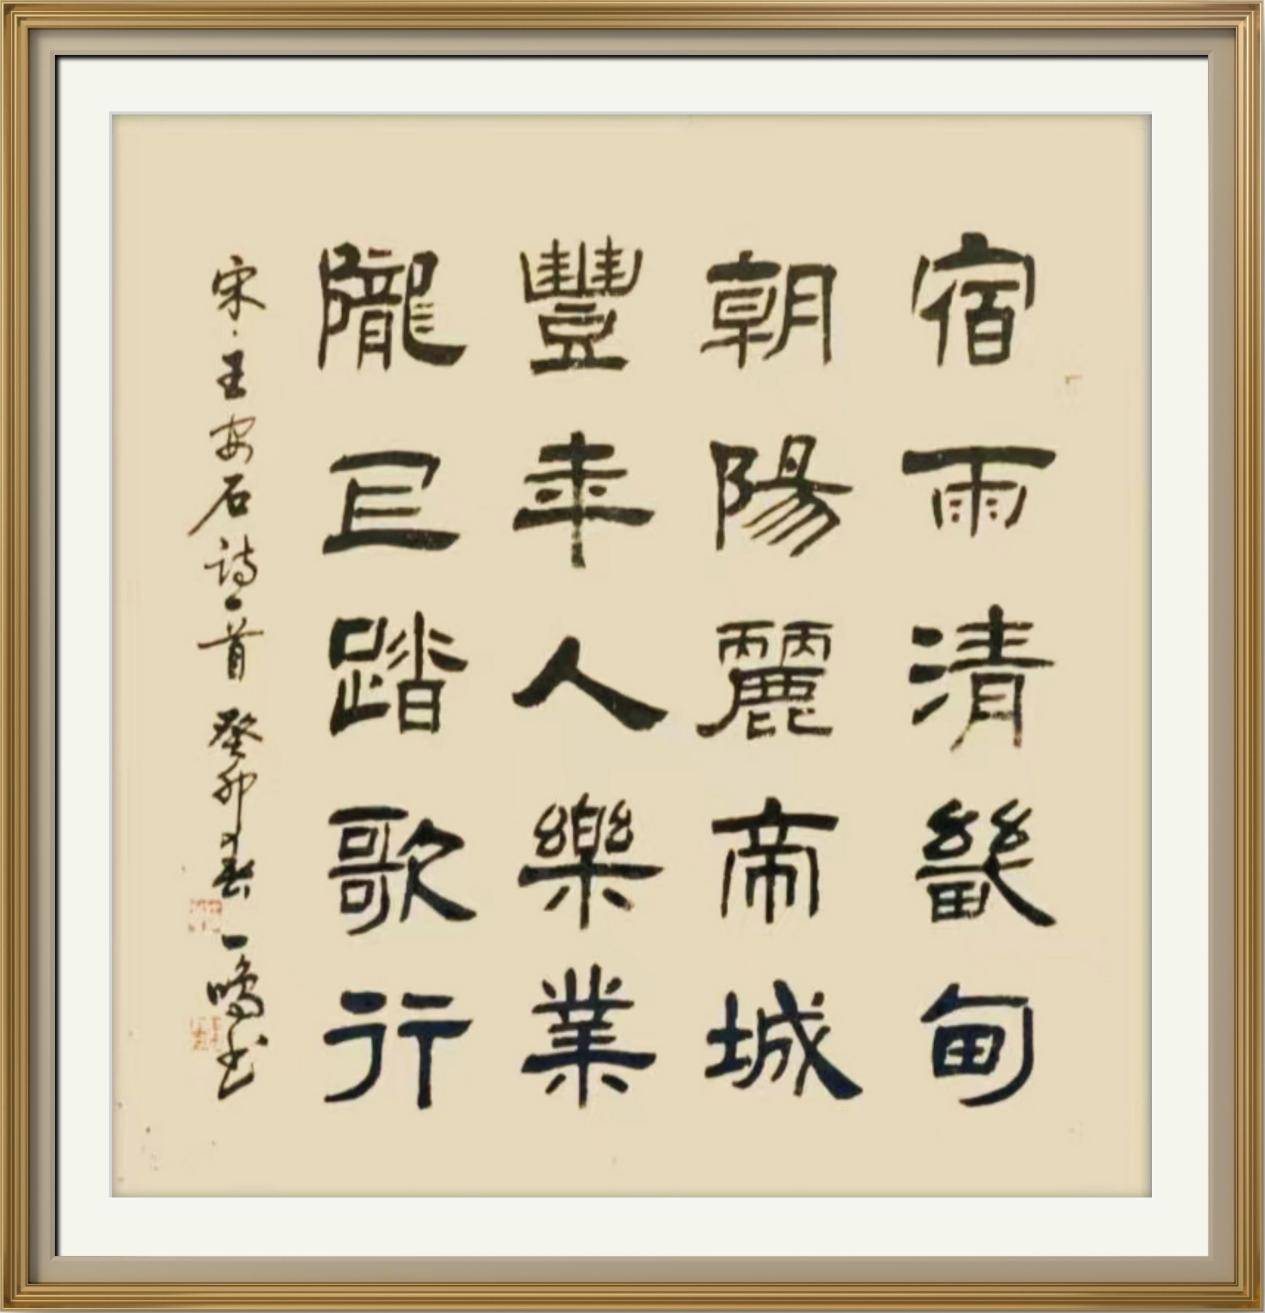 宿雨清畿甸
朝陽麗帝城
豐年人樂業
隴上踏歌行
宋·王安石诗一首 癸卯春 一鸣书